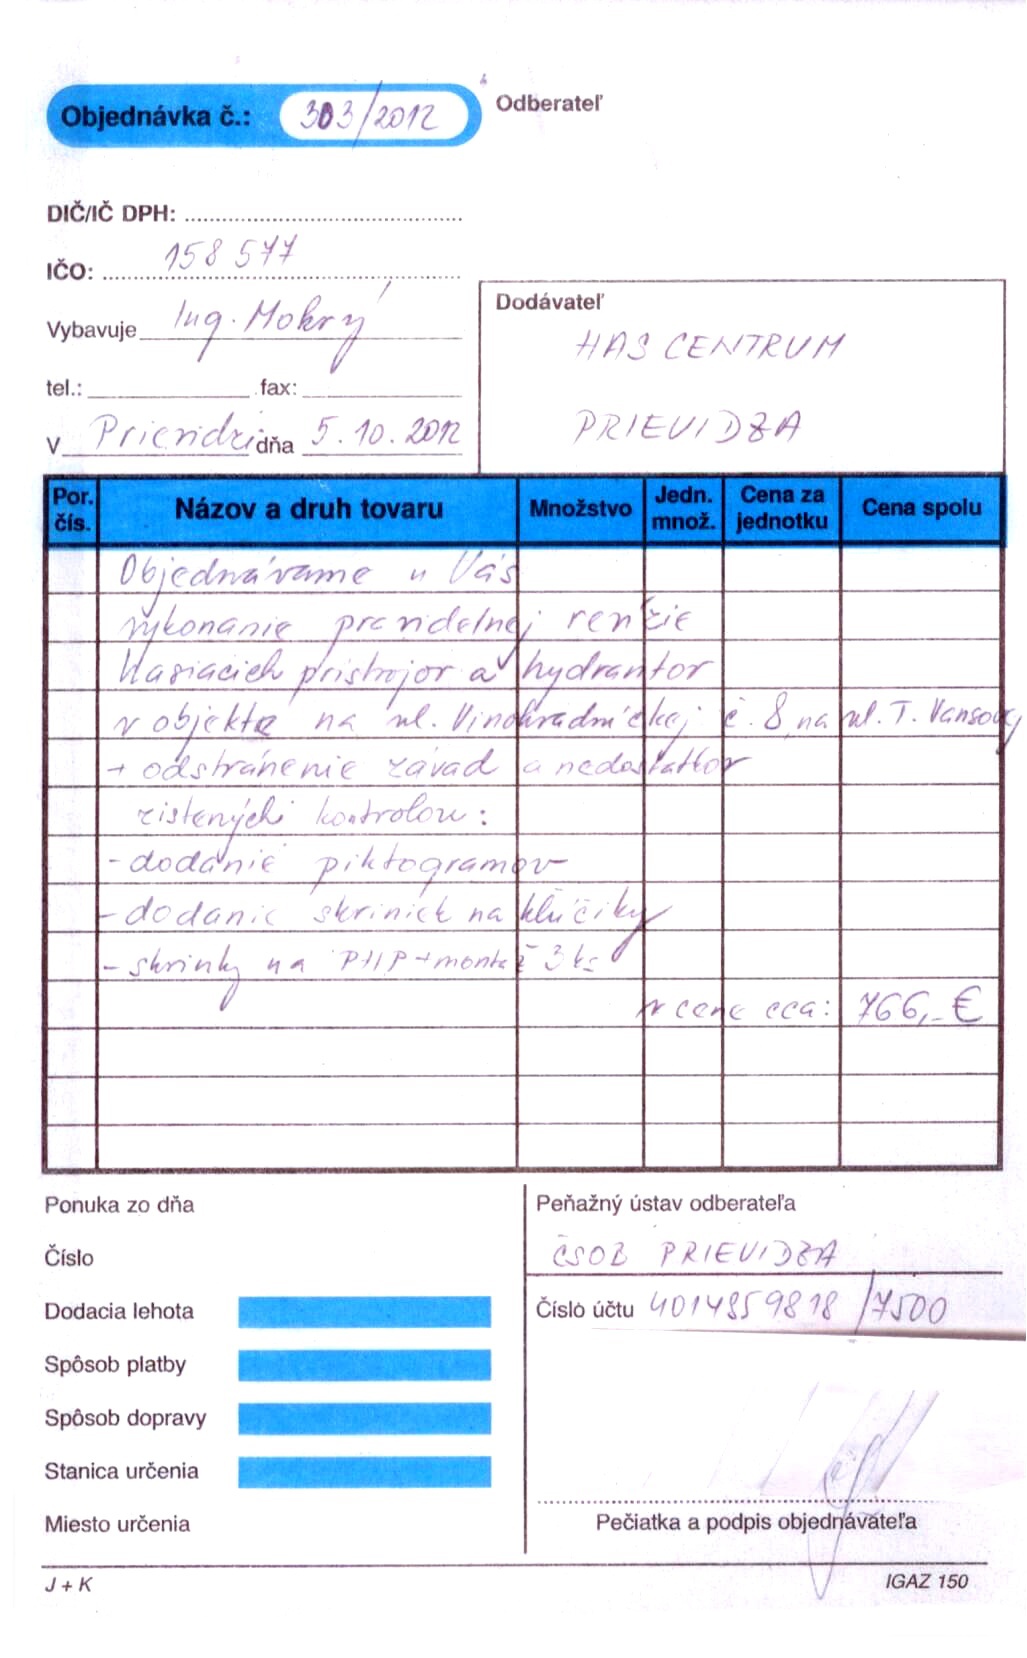 Objednávka č.: 303/2012
Odberateľ
DIČ/IČ DPH:
IČO: 158 577
Vybavuje Ing. Mokrý
tel.: fax:
V Prievidzi dňa 5.10.2012
Dodávateľ
HAS CENTRUM
PRIEVIDZA
Por. čís. Názov a druh tovaru Množstvo Jedn. množ. Cena za jednotku Cena spolu
Objednávame u Vás
vykonanie pravidelnej revízie
Hasiacich prístrojov a hydrantov
v objekte na ul. Vinohradníckej č. 8, na ul. T. Vansovej
+ odstránenie závad a nedostatkov
zistených kontrolou:
- dodanie piktogramov
- dodanie skriniek na kľúčiky
- skrinky na PHP + montáž 3 ks
v cene cca: 766,- €
Ponuka zo dňa
Číslo
Dodacia lehota
Spôsob platby
Spôsob dopravy
Stanica určenia
Miesto určenia
Peňažný ústav odberateľa
ČSOB PRIEVIDZA
Číslo účtu 4014859818 /7500
Pečiatka a podpis objednávateľa
J + K
IGAZ 150